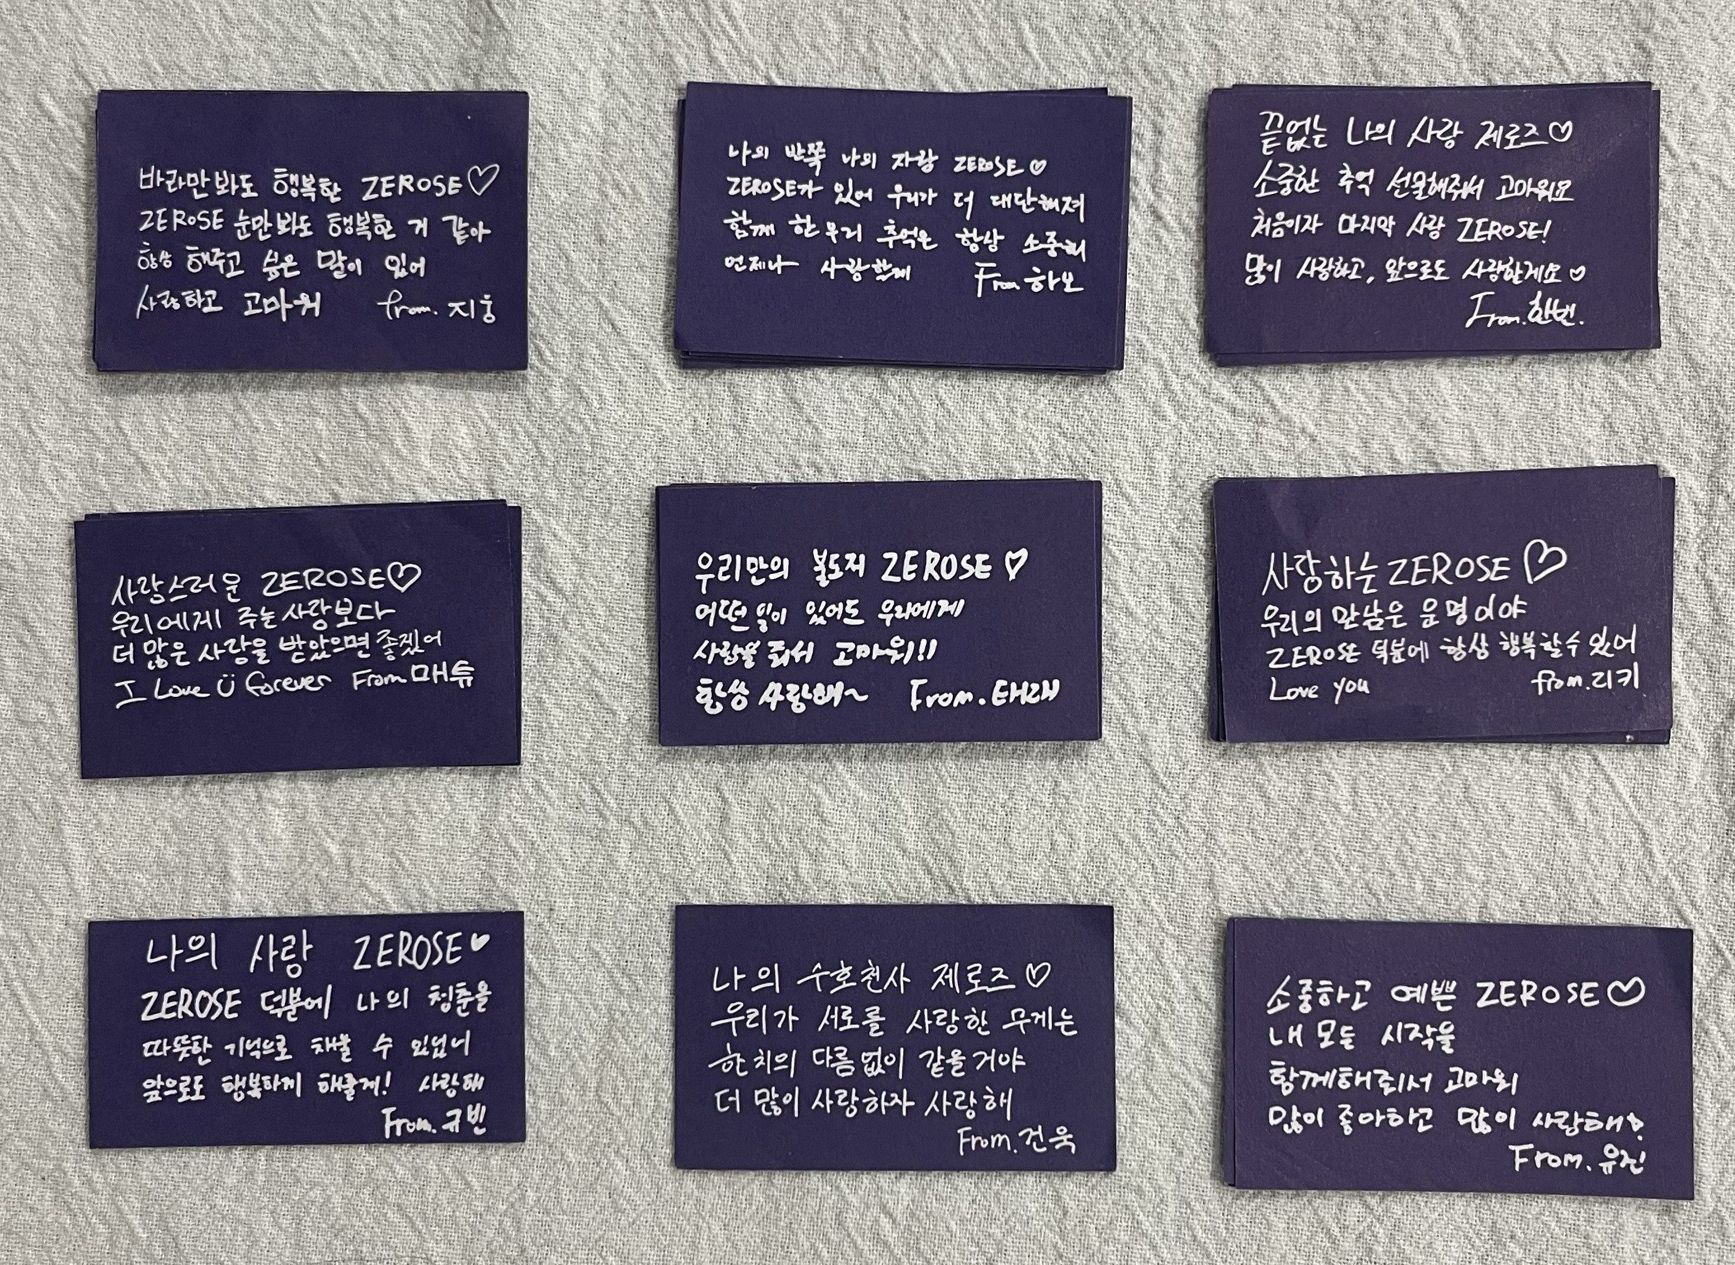 바라만 봐도 행복한 ZEROSE♡
ZEROSE 눈만 봐도 행복한 거 같아
항상 해주고 싶은 말이 있어
사랑하고 고마워 from. 지웅
나의 반쪽 나의 자랑 ZEROSE♡
ZEROSE가 있어 우리가 더 대단해져
함께 한 우리 추억은 항상 소중해
언제나 사랑할게 From 하오
끝없는 나의 사랑 제로즈♡
소중한 추억 선물해줘서 고마워요
처음이자 마지막 사랑 ZEROSE!
많이 사랑하고, 앞으로도 사랑할게요♡
From. 한빈.
사랑스러운 ZEROSE♡
우리에게 주는 사랑보다
더 많은 사랑을 받았으면 좋겠어
I Love Ü forever From 매튜
우리만의 ZEROSE♡
어떤 일이 있어도 우리에게
사랑을 줘서 고마워!!
항상 사랑해~ From. 태래
사랑하는 ZEROSE♡
우리의 만남은 운명이야
ZEROSE 덕분에 항상 행복할 수 있어
Love you from. 리키
나의 사랑 ZEROSE♥
ZEROSE 덕분에 나의 청춘을
따뜻한 기억으로 채울 수 있었어
앞으로도 행복하게 해줄게! 사랑해
From. 규빈
나의 수호천사 제로즈♡
우리가 서로를 사랑한 무게는
한 치의 다름 없이 같을 거야
더 많이 사랑하자 사랑해
From. 건욱
소중하고 예쁜 ZEROSE♡
내 모든 시작을
함께해줘서 고마워
많이 좋아하고 많이 사랑해
From. 유진